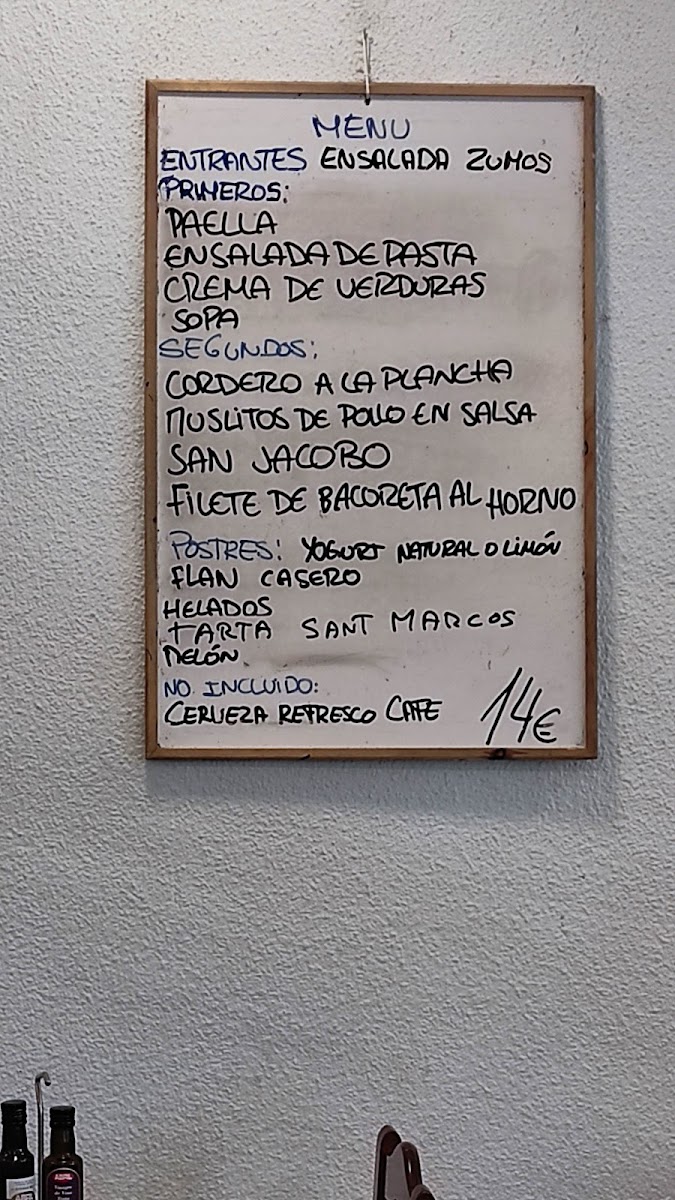 MENU
ENTRANTES ENSALADA ZUMOS
PRIMEROS:
PAELLA
ENSALADA DE PASTA
CREMA DE VERDURAS
SOPA
SEGUNDOS:
CORDERO A LA PLANCHA
MUSLITOS DE POLLO EN SALSA
SAN JACOBO
FILETE DE BACORETA AL HORNO
POSTRES: YOGURT NATURAL O LIMÓN
FLAN CASERO
HELADOS
TARTA SANT MARCOS
MELÓN
NO INCLUIDO:
CERVEZA REFRESCO CAFE 14€